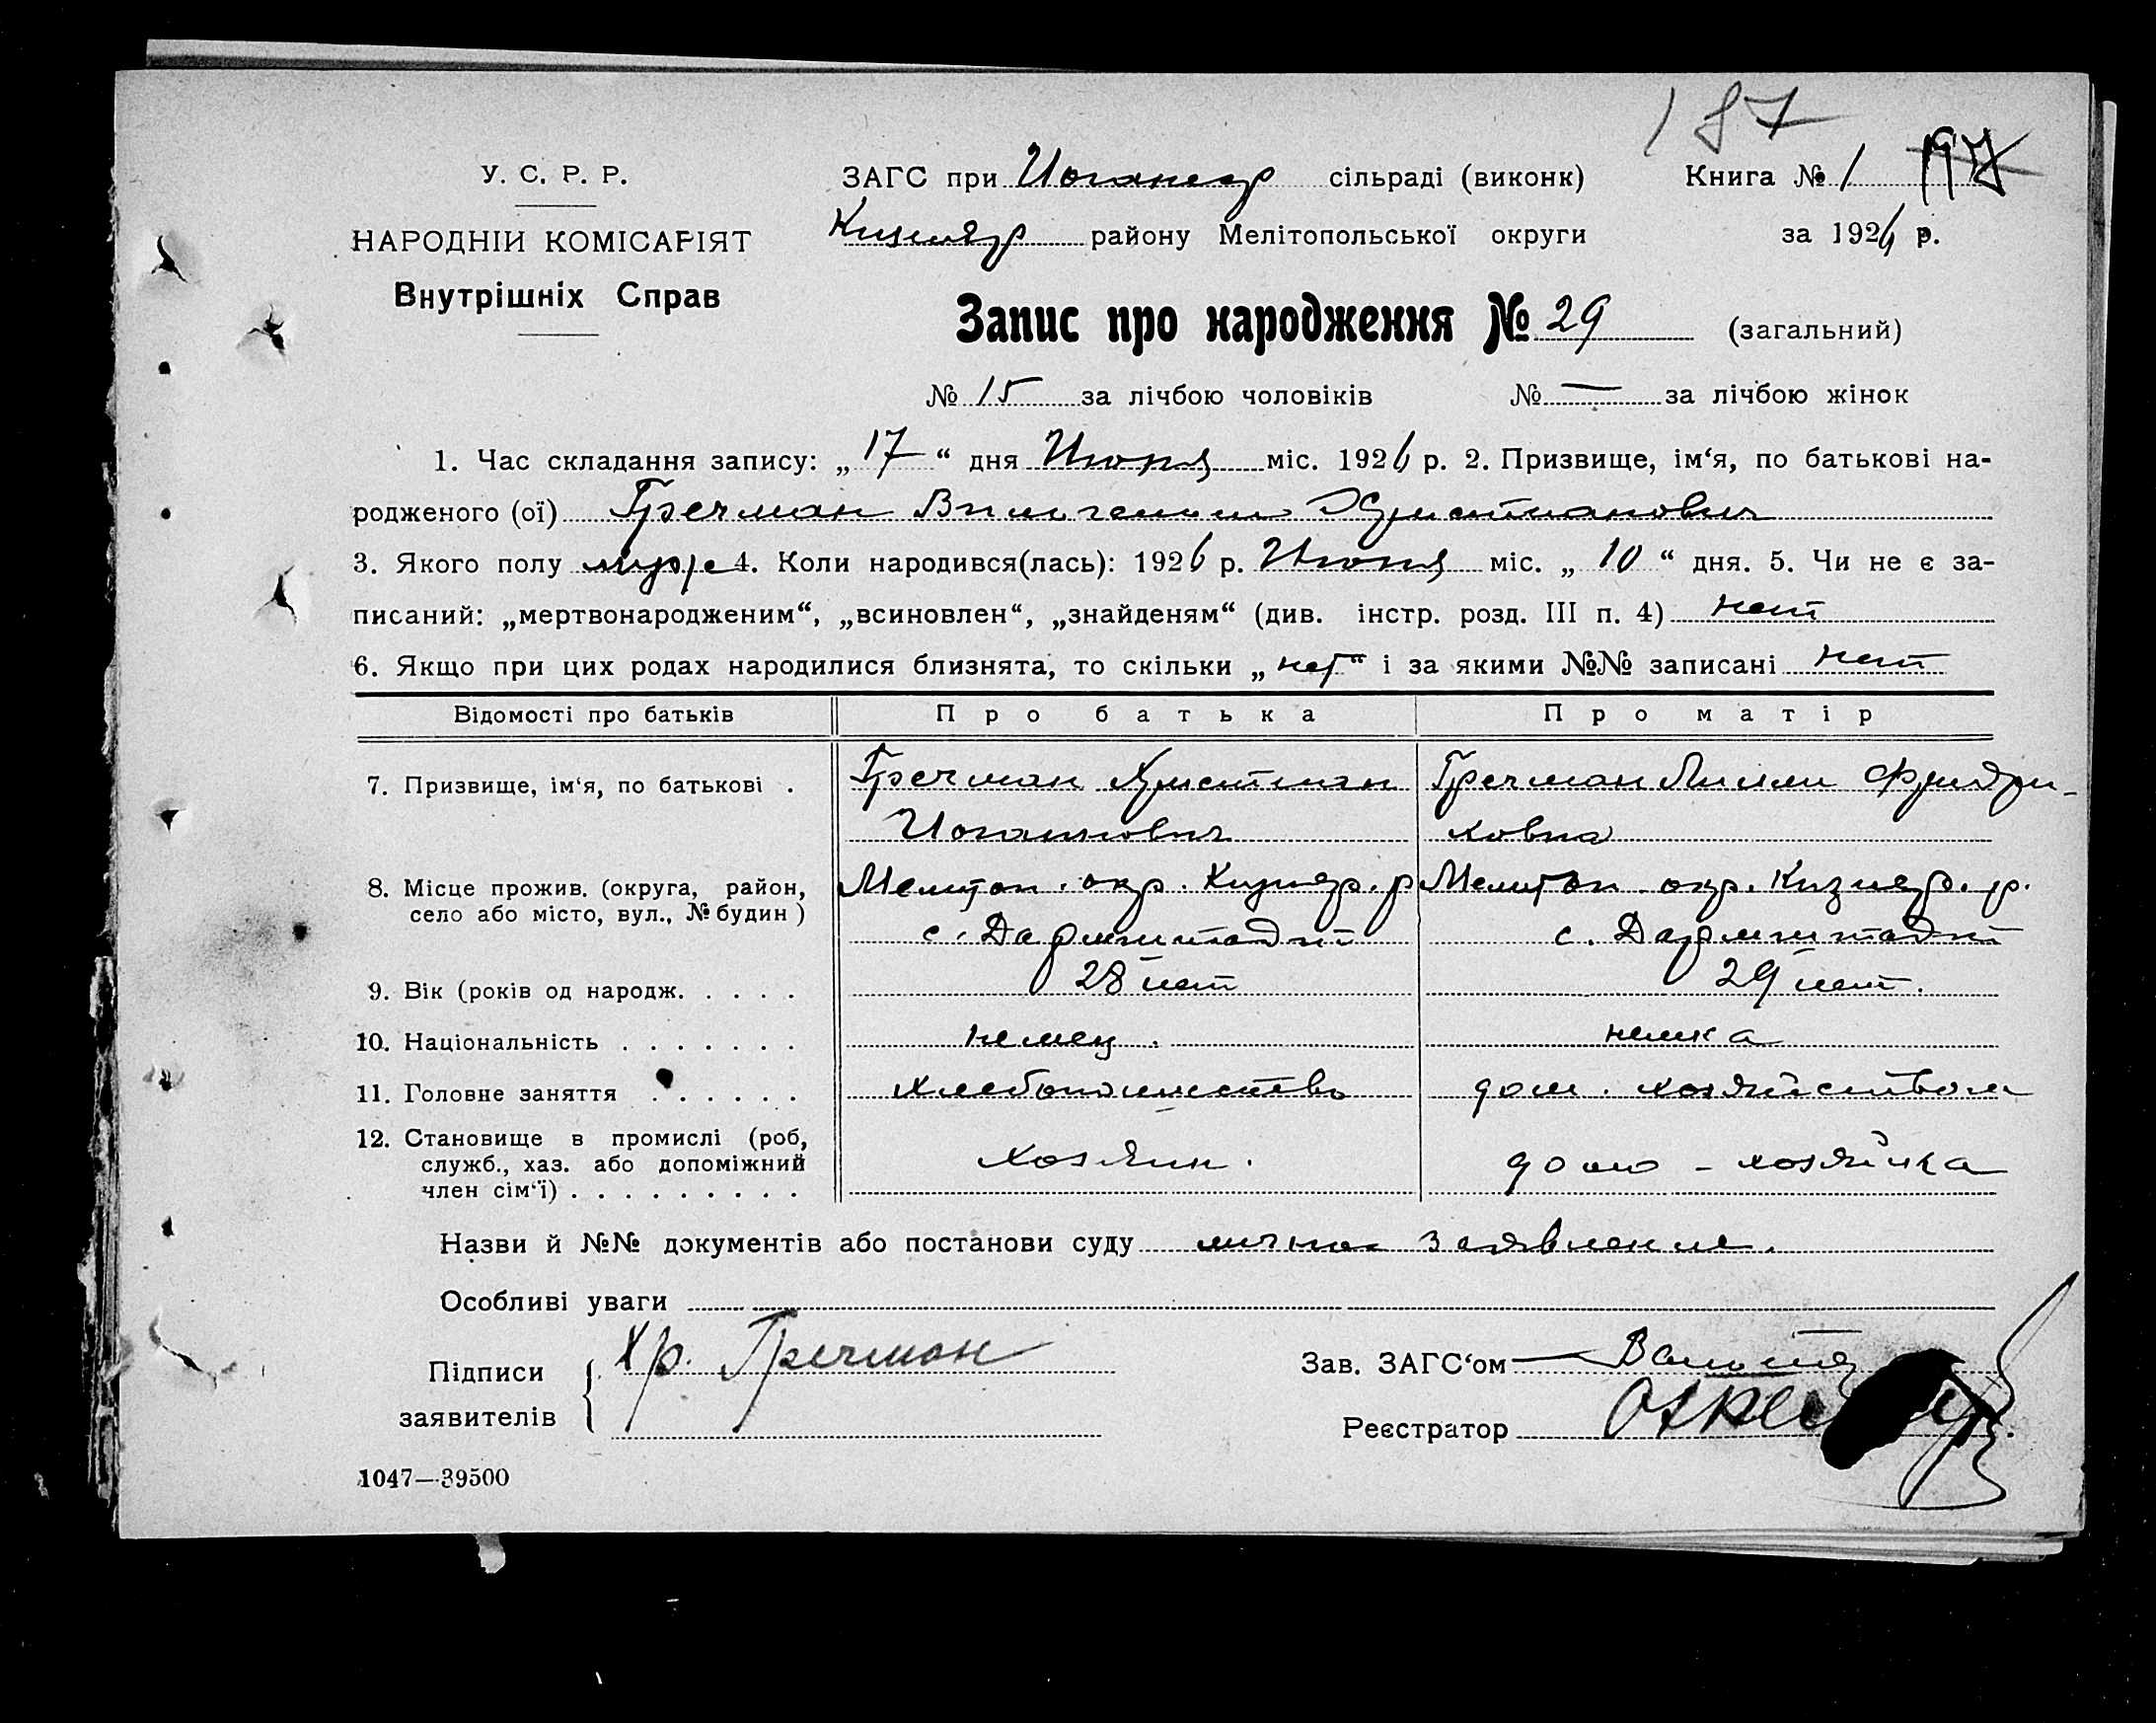 187
У. С. Р. Р.
НАРОДНІЙ КОМІСАРІЯТ
Внутрішніх Справ
ЗАГС при сільраді (виконк) Книга № 1 197
Кизияр району Мелітопольської округи за 1926 р.
Запис про народження № 29 (загальний)
№ 15 за лічбою чоловіків № — за лічбою жінок
1. Час складання запису: „ 17 “ дня Июня міс. 1926 р. 2. Призвище, ім‘я, по батькові на-
родженого (ої) Гречман Вильгельм Христианович
3. Якого полу муж 4. Коли народився(лась): 1926 р. Июня міс. „ 10 “ дня. 5. Чи не є за-
писаний: „мертвонародженим“, „всиновлен“, „знайденям“ (див. інстр. розд. III п. 4) нет
6. Якщо при цих родах народилися близнята, то скільки „ нет “ і за якими №№ записані нет
Відомості про батьків Про батька Про матір
7. Призвище, ім‘я, по батькові . Гречман Христиан Гречман Лилли Фридри-
Иоганнович ховна
8. Місце прожив. (округа, район, Мелитоп. окр. Кизияр. р Мелитоп. окр. Кизияр. р.
село або місто, вул., № будин ) с. Дармштадт с. Дармштадт
9. Вік (років од народж. . . . . 28 лет 29 лет.
10. Національність . . . . . . . немец. немка
11. Головне заняття . . . . . . хлебопашество дом. хозяйством
12. Становище в промислі (роб, хозяин. дом - хозяйка
служб., хаз. або допоміжний
член сім‘ї) . . . . . . . . . .
Назви й №№ документів або постанови суду лично заявление.
Особливі уваги
Підписи Хр. Гречман Зав. ЗАГС‘ом
заявителів Реєстратор
1047—39500